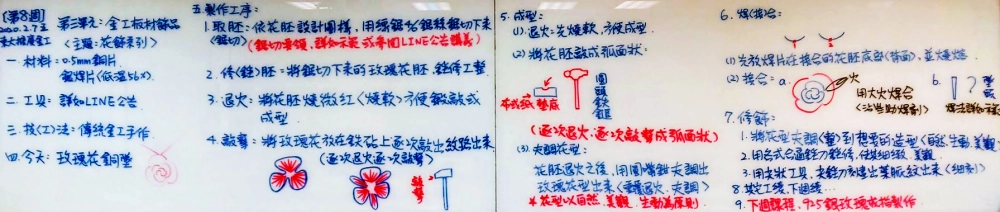 [第8週]
第三單元：金工板材飾品
（主題：花飾系列）
一、材料：0.5mm銅片
銀焊片（低溫56×）
二、工具：詳如LINE公告
三、技(工)法：傳統金工手作
四、今天：玫瑰花銅墜
五、製作工序：
1. 取胚：依花胚設計圖樣，用線鋸
（鋸切）（鋸切要領，詳如示範或參閱LINE公告講義）
2. 修(銼)胚：將鋸切下來的玫瑰花胚，銼修工整
3. 退火：將花胚燒微紅（燒軟）方便敲敲或
成型
4. 敲擊：將玫瑰花放在鉄砧上逐次敲出紋路出來
（逐次退火逐次敲擊）
5. 成型：
(1) 退火：先燒軟，方便成型
(2) 將花胚敲成弧面狀：
布或紙
墊底
圓
頭
鉄
鎚
（逐次退火、逐次敲擊成弧面狀）
(3) 夾調花型：
花胚退火之後，用圓嘴鉗夾調出
玫瑰花型出來（重覆退火、夾調）
*花型以自然、美觀、生動為原則
6. 焊(接)合：
(1) 先放焊片在接合的花胚底部(背面)，並燒熔
(2) 接合：a.
火
用大火焊合
（沾些助焊劑）
b.
7. 修飾：
1. 將花型夾調(彎)到想要的造型（自然、生動、美觀
2. 用各式合適銼刀銼修，使其細緻、美觀
8. 其它工續，下週續…
9. 下週課程，925銀玫瑰戒指製作